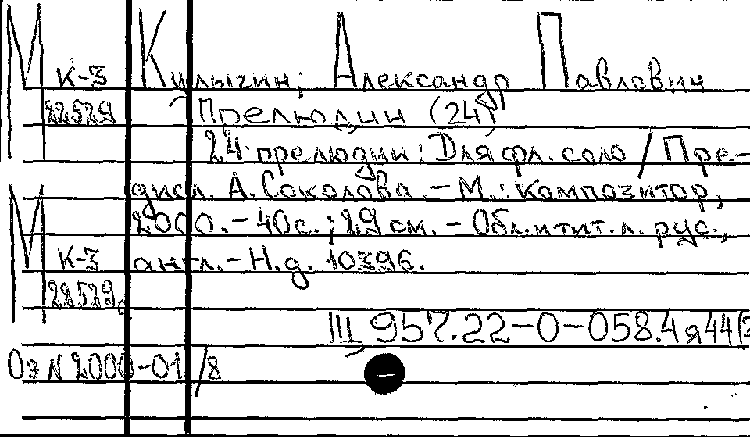 М К-3 Кулыгин; Александр Павлович
22529 Прелюдии (24)
24 прелюдии: Для фл. соло / Пре-
дисл. А. Соколова. - М.: Композитор,
2000. - 40 с.; 29 см. - Обл. и тит. л. рус.,
М К-3 англ. - Н.д. 10396.
22529.
Ш 957.22-0-058.4я44(2
Оэ N 2000-01/8